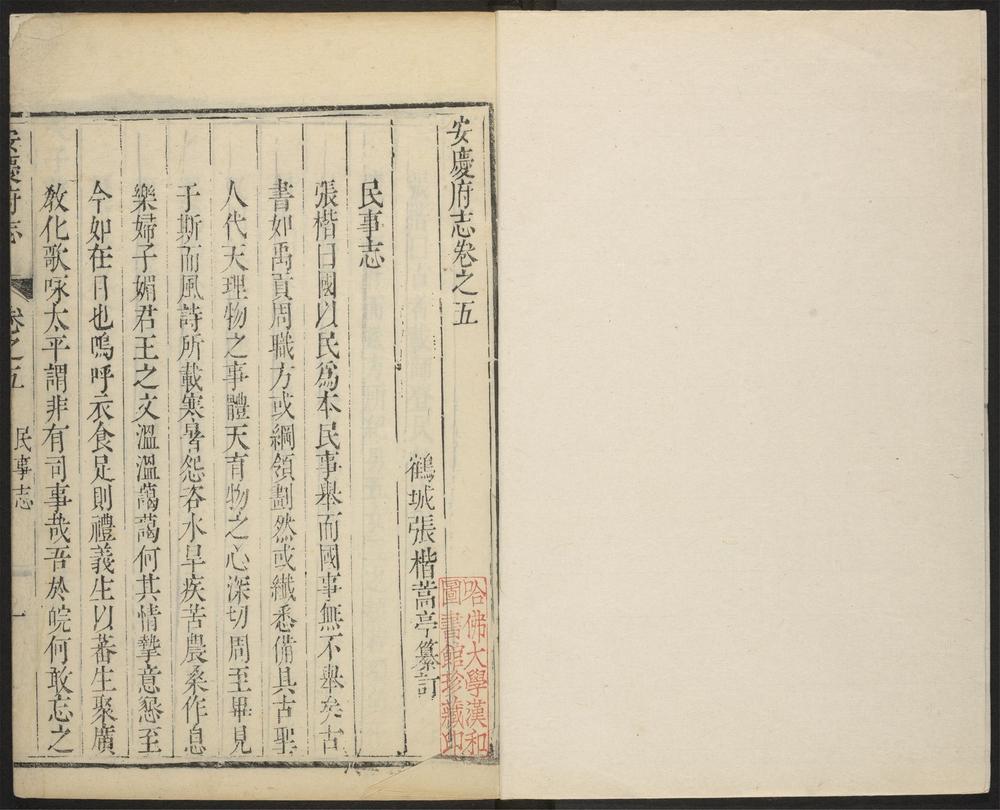 安慶府志卷之五
鶴城張楷蒿亭纂訂
民事志
張楷曰國以民爲本民事舉而國事無不舉矣古
書如禹貢周職方或綱領劃然或纖悉備具古聖
人代天理物之事體天育物之心深切周至畢見
于斯而風詩所載寒暑怨咨水旱疾苦農桑作息
樂婦子媚君王之文溫溫藹藹何其情摯意懇至
今如在目也嗚呼衣食足則禮義生以蕃生聚廣
敎化歌咏太平謂非有司事哉吾於皖何敢忘之
安慶府志
卷之五
民事志
一
哈佛大學漢和
圖書館珍藏印